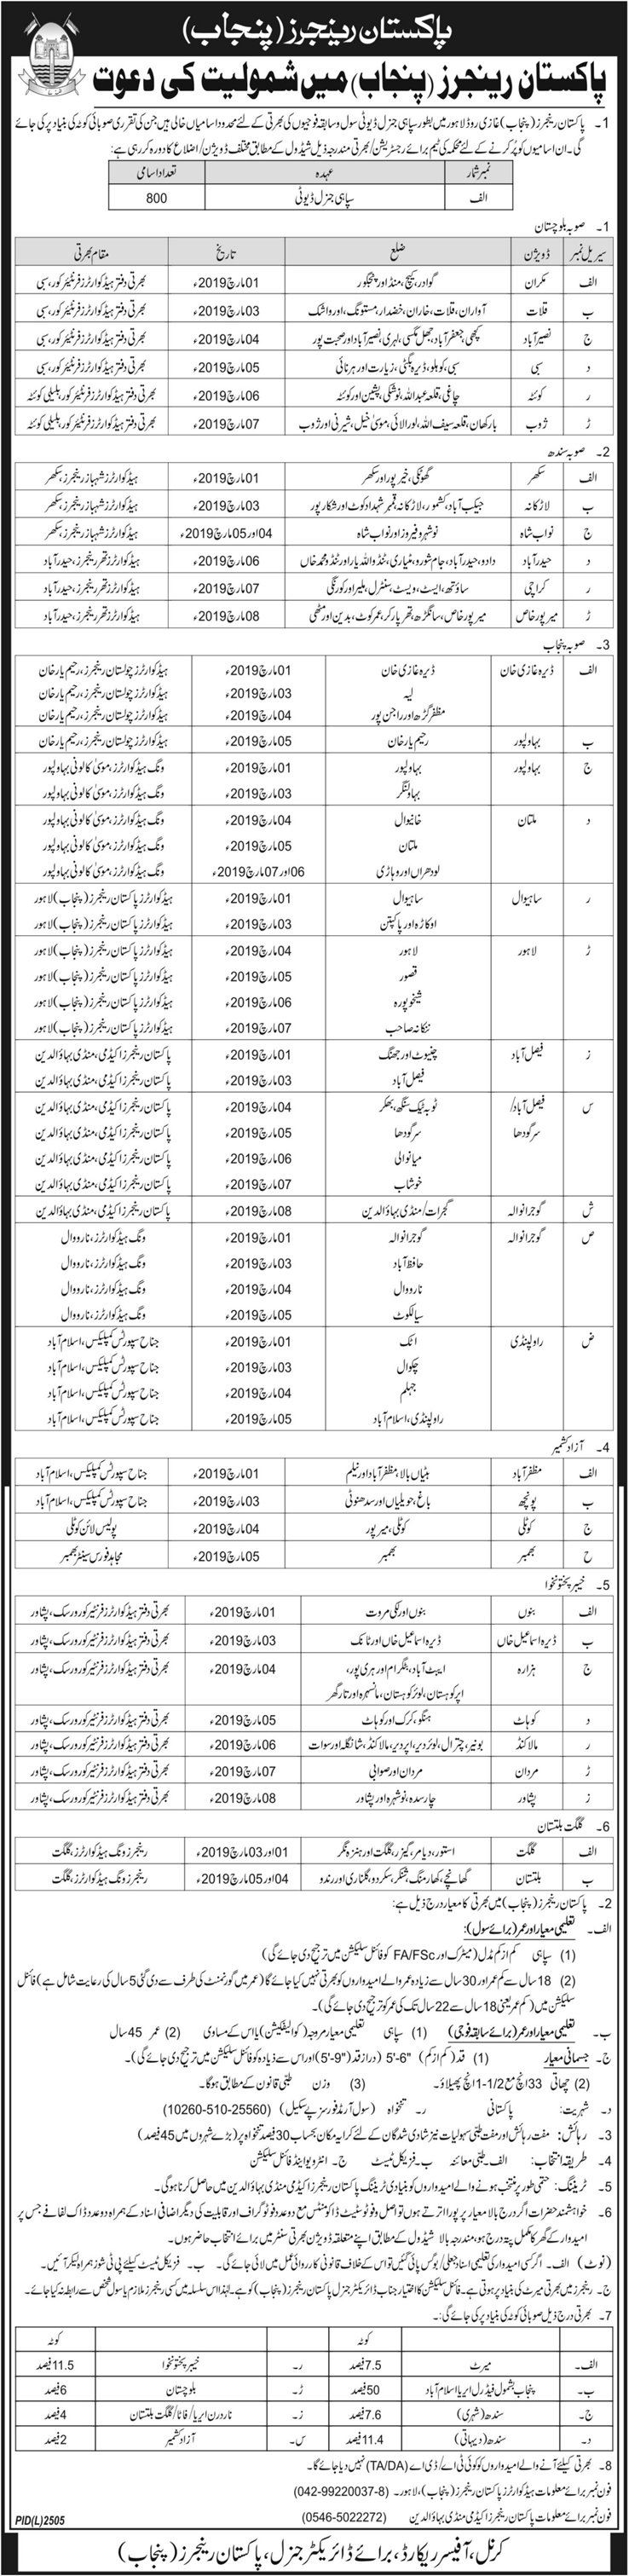 پاکستان رینجرز (پنجاب)
پاکستان رینجرز (پنجاب) میں شمولیت کی دعوت
1۔ پاکستان رینجرز (پنجاب) غازی روڈ لاہور میں بطور سپاہی جنرل ڈیوٹی سول و سابقہ فوجیوں کی بھرتی کے لئے محدود اسامیاں خالی ہیں جن کی تقرری صوبائی کوٹہ کی بنیاد پر کی جائے
گی۔ ان اسامیوں کو پُر کرنے کے لئے محکمہ کی ٹیم برائے رجسٹریشن/بھرتی مندرجہ ذیل شیڈول کے مطابق مختلف ڈویژن/اضلاع کا دورہ کر رہی ہے:
نمبر شمار عہدہ تعداد اسامی
الف سپاہی جنرل ڈیوٹی 800
1۔ صوبہ بلوچستان
سیریل نمبر ڈویژن ضلع تاریخ مقام بھرتی
الف مکران گوادر، کیچ، مند اور پنجگور 01مارچ2019ء بھرتی دفتر ہیڈکوارٹرز فرنٹیئر کور، سبی
ب قلات آواران، قلات، خاران، خضدار، مستونگ، اور واشک 03مارچ2019ء بھرتی دفتر ہیڈکوارٹرز فرنٹیئر کور، سبی
ج نصیر آباد کچھی، جعفر آباد، جھل مگسی، لہری، نصیر آباد اور صحبت پور 04مارچ2019ء بھرتی دفتر ہیڈکوارٹرز فرنٹیئر کور، سبی
د سبی سبی، کوہلو، ڈیرہ بگٹی، زیارت اور ہرنائی 05مارچ2019ء بھرتی دفتر ہیڈکوارٹرز فرنٹیئر کور، سبی
ر کوئٹہ چاغی، قلعہ عبداللہ، نوشکی، پشین اور کوئٹہ 06مارچ2019ء بھرتی دفتر ہیڈکوارٹرز فرنٹیئر کور، بلیلی کوئٹہ
ڑ ژوب بارکھان، قلعہ سیف اللہ، لورالائی، موسیٰ خیل، شیرنی اور ژوب 07مارچ2019ء بھرتی دفتر ہیڈکوارٹرز فرنٹیئر کور، بلیلی کوئٹہ
2۔ صوبہ سندھ
الف سکھر گھوٹکی، خیرپور اور سکھر 01مارچ2019ء ہیڈکوارٹرز شہباز رینجرز، سکھر
ب لاڑکانہ جیکب آباد، کشمور، لاڑکانہ، قمبر شہدادکوٹ اور شکارپور 03مارچ2019ء ہیڈکوارٹرز شہباز رینجرز، سکھر
ج نواب شاہ نوشہرو فیروز اور نواب شاہ 04اور05مارچ2019ء ہیڈکوارٹرز شہباز رینجرز، سکھر
د حیدرآباد دادو، حیدرآباد، جام شورو، مٹیاری، ٹنڈو اللہ یار اور ٹنڈو محمد خاں 06مارچ2019ء ہیڈکوارٹرز تھر رینجرز، حیدرآباد
ر کراچی ساؤتھ، ایسٹ، ویسٹ، سنٹرل، ملیر اور کورنگی 07مارچ2019ء ہیڈکوارٹرز تھر رینجرز، حیدرآباد
ڑ میرپور خاص میرپور خاص، سانگڑھ، تھرپارکر، عمر کوٹ، بدین اور مٹھی 08مارچ2019ء ہیڈکوارٹرز تھر رینجرز، حیدرآباد
3۔ صوبہ پنجاب
الف ڈیرہ غازی خان ڈیرہ غازی خان 01مارچ2019ء ہیڈکوارٹرز چولستان رینجرز، رحیم یار خان
لیہ 03مارچ2019ء ہیڈکوارٹرز چولستان رینجرز، رحیم یار خان
مظفر گڑھ اور راجن پور 04مارچ2019ء ہیڈکوارٹرز چولستان رینجرز، رحیم یار خان
ب بہاولپور رحیم یار خان 05مارچ2019ء ہیڈکوارٹرز چولستان رینجرز، رحیم یار خان
ج بہاولپور بہاولپور 01مارچ2019ء ونگ ہیڈکوارٹرز، موسیٰ کالونی بہاولپور
بہاولنگر 03مارچ2019ء ونگ ہیڈکوارٹرز، موسیٰ کالونی بہاولپور
د ملتان خانیوال 04مارچ2019ء ونگ ہیڈکوارٹرز، موسیٰ کالونی بہاولپور
ملتان 05مارچ2019ء ونگ ہیڈکوارٹرز، موسیٰ کالونی بہاولپور
لودھراں اور وہاڑی 06اور07مارچ2019ء ونگ ہیڈکوارٹرز، موسیٰ کالونی بہاولپور
ر ساہیوال ساہیوال 01مارچ2019ء ہیڈکوارٹرز پاکستان رینجرز (پنجاب) لاہور
اوکاڑہ اور پاکپتن 03مارچ2019ء ہیڈکوارٹرز پاکستان رینجرز (پنجاب) لاہور
ڑ لاہور لاہور 04مارچ2019ء ہیڈکوارٹرز پاکستان رینجرز (پنجاب) لاہور
قصور 05مارچ2019ء ہیڈکوارٹرز پاکستان رینجرز (پنجاب) لاہور
شیخوپورہ 06مارچ2019ء ہیڈکوارٹرز پاکستان رینجرز (پنجاب) لاہور
ننکانہ صاحب 07مارچ2019ء ہیڈکوارٹرز پاکستان رینجرز (پنجاب) لاہور
ز فیصل آباد چنیوٹ اور جھنگ 01مارچ2019ء پاکستان رینجرز اکیڈمی، منڈی بہاؤالدین
فیصل آباد 03مارچ2019ء پاکستان رینجرز اکیڈمی، منڈی بہاؤالدین
س فیصل آباد/ ٹوبہ ٹیک سنگھ، بھکر 04مارچ2019ء پاکستان رینجرز اکیڈمی، منڈی بہاؤالدین
سرگودھا سرگودھا 05مارچ2019ء پاکستان رینجرز اکیڈمی، منڈی بہاؤالدین
میانوالی 06مارچ2019ء پاکستان رینجرز اکیڈمی، منڈی بہاؤالدین
خوشاب 07مارچ2019ء پاکستان رینجرز اکیڈمی، منڈی بہاؤالدین
ش گوجرانوالہ گجرات/منڈی بہاؤالدین 08مارچ2019ء پاکستان رینجرز اکیڈمی، منڈی بہاؤالدین
ص گوجرانوالہ گوجرانوالہ 01مارچ2019ء ونگ ہیڈکوارٹرز، نارووال
حافظ آباد 03مارچ2019ء ونگ ہیڈکوارٹرز، نارووال
نارووال 04مارچ2019ء ونگ ہیڈکوارٹرز، نارووال
سیالکوٹ 05مارچ2019ء ونگ ہیڈکوارٹرز، نارووال
ض راولپنڈی اٹک 01مارچ2019ء جناح سپورٹس کمپلیکس، اسلام آباد
چکوال 03مارچ2019ء جناح سپورٹس کمپلیکس، اسلام آباد
جہلم 04مارچ2019ء جناح سپورٹس کمپلیکس، اسلام آباد
راولپنڈی، اسلام آباد 05مارچ2019ء جناح سپورٹس کمپلیکس، اسلام آباد
4۔ آزاد کشمیر
الف مظفر آباد ہٹیاں بالا، مظفر آباد اور نیلم 01مارچ2019ء جناح سپورٹس کمپلیکس، اسلام آباد
ب پونچھ باغ، حویلیاں اور سدھنوٹی 03مارچ2019ء جناح سپورٹس کمپلیکس، اسلام آباد
ج کوٹلی کوٹلی، میرپور 04مارچ2019ء پولیس لائن کوٹلی
ح بھمبر بھمبر 05مارچ2019ء مجاہد فورس سینٹر بھمبر
5۔ خیبر پختونخوا
الف بنوں بنوں اور لکی مروت 01مارچ2019ء بھرتی دفتر ہیڈکوارٹرز فرنٹیئر کور ورسک، پشاور
ب ڈیرہ اسماعیل خاں ڈیرہ اسماعیل خاں اور ٹانک 03مارچ2019ء بھرتی دفتر ہیڈکوارٹرز فرنٹیئر کور ورسک، پشاور
ج ہزارہ ایبٹ آباد، بٹگرام اور ہری پور، 04مارچ2019ء بھرتی دفتر ہیڈکوارٹرز فرنٹیئر کور ورسک، پشاور
اپر کوہستان، لوئر کوہستان، مانسہرہ اور تارگھر
د کوہاٹ ہنگو، کرک اور کوہاٹ 05مارچ2019ء بھرتی دفتر ہیڈکوارٹرز فرنٹیئر کور ورسک، پشاور
ر مالاکنڈ بونیر، چترال، لوئر دیر، اپر دیر، مالاکنڈ، شانگلہ اور سوات 06مارچ2019ء بھرتی دفتر ہیڈکوارٹرز فرنٹیئر کور ورسک، پشاور
ڑ مردان مردان اور صوابی 07مارچ2019ء بھرتی دفتر ہیڈکوارٹرز فرنٹیئر کور ورسک، پشاور
ز پشاور چارسدہ، نوشہرہ اور پشاور 08مارچ2019ء بھرتی دفتر ہیڈکوارٹرز فرنٹیئر کور ورسک، پشاور
6۔ گلگت بلتستان
الف گلگت استور، دیامر، گیزر، گلگت اور ہنزہ نگر 01اور03مارچ2019ء رینجرز ونگ ہیڈکوارٹرز، گلگت
ب بلتستان گھانچے، کھارمنگ، شگر، سکردو، گلتاری اور رندو 04اور05مارچ2019ء رینجرز ونگ ہیڈکوارٹرز، گلگت
2۔ پاکستان رینجرز (پنجاب) میں بھرتی کا معیار درج ذیل ہے:
الف۔ تعلیمی معیار اور عمر (برائے سول):
(1) سپاہی کم از کم مڈل (میٹرک اور FA/FSc کو فائنل سلیکشن میں ترجیح دی جائے گی)
(2) 18 سال سے کم عمر اور 30 سال سے زیادہ عمر والے امیدواروں کو بھرتی نہیں کیا جائے گا (عمر میں گورنمنٹ کی طرف سے دی گئی 5 سال کی رعایت شامل ہے) (فائنل
سلیکشن میں کم عمر یعنی 18 سال سے 22 سال تک کی عمر کو ترجیح دی جائے گی)۔
ب۔ تعلیمی معیار اور عمر (برائے سابقہ فوجی) (1) سپاہی تعلیمی معیار مروجہ (کوالیفکیشن) یا اس کے مساوی (2) عمر 45 سال
ج۔ جسمانی معیار (1) قد (کم از کم) "6-'5 (دراز قد "9-'5 اور اس سے زیادہ کو فائنل سلیکشن میں ترجیح دی جائے گی)۔
(2) چھاتی 33 انچ مع 1-1/2 انچ پھیلاؤ۔ (3) وزن طبی قانون کے مطابق ہوگا۔
د۔ شہریت: پاکستانی ر۔ تنخواہ (سول آرمڈ فورسز پے سکیل) (10260-510-25560)
3۔ رہائش: مفت رہائش اور مفت طبی سہولیات نیز شادی شدگان کے لئے کرایہ مکان بحساب 30 فیصد تنخواہ پر (بڑے شہروں میں 45 فیصد)
4۔ طریقہ انتخاب: الف۔ طبی معائنہ ب۔ فزیکل ٹیسٹ ج۔ انٹرویو اینڈ فائنل سلیکشن
5۔ ٹریننگ: حتمی طور پر منتخب ہونے والے امیدواروں کو بنیادی ٹریننگ پاکستان رینجرز اکیڈمی منڈی بہاؤالدین میں حاصل کرنا ہوگی۔
6۔ خواہشمند حضرات اگر درج بالا معیار پر پورا اترتے ہوں تو اصل و فوٹو سٹیٹ ڈاکومنٹس مع دو عدد فوٹو گراف اور قابلیت کی دیگر اضافی اسناد کے ہمراہ دو عدد ڈاک لفافے جس پر
امیدوار کے گھر کا مکمل پتہ درج ہو، مندرجہ بالا شیڈول کے مطابق اپنے متعلقہ ڈویژن بھرتی سنٹر میں برائے انتخاب حاضر ہوں۔
(نوٹ) الف۔ اگر کسی امیدوار کی تعلیمی اسناد جعلی/بوگس پائی گئیں تو اس کے خلاف قانونی کارروائی عمل میں لائی جائے گی۔ ب۔ فزیکل ٹیسٹ کیلئے پی ٹی شوز ہمراہ لیکر آئیں۔
ج۔ رینجرز میں بھرتی میرٹ کی بنیاد پر ہوتی ہے۔ فائنل سلیکشن کا اختیار جناب ڈائریکٹر جنرل پاکستان رینجرز (پنجاب) کو ہے۔ لہٰذا اس سلسلہ میں کسی رینجرز ملازم یا سول شخص سے رابطہ نہ کیا جائے۔
7۔ بھرتی درج ذیل صوبائی کوٹہ کی بنیاد پر کی جائے گی:۔
کوٹہ کوٹہ
الف۔ میرٹ 7.5 فیصد ر۔ خیبر پختونخوا 11.5 فیصد
ب۔ پنجاب بشمول فیڈرل ایریا اسلام آباد 50 فیصد ڑ۔ بلوچستان 6 فیصد
ج۔ سندھ (شہری) 7.6 فیصد ز۔ ناردرن ایریا/فاٹا/گلگت بلتستان 4 فیصد
د۔ سندھ (دیہاتی) 11.4 فیصد س۔ آزاد کشمیر 2 فیصد
8۔ بھرتی کیلئے آنے والے امیدواروں کو کوئی ٹی اے/ڈی اے (TA/DA) نہیں دیا جائے گا۔
فون نمبر برائے معلومات ہیڈکوارٹرز پاکستان رینجرز (پنجاب)، لاہور۔ (042-99220037-8)
فون نمبر برائے معلومات پاکستان رینجرز اکیڈمی منڈی بہاؤالدین (0546-5022272)
PID(L)2505
کرنل، آفیسر ریکارڈ، برائے ڈائریکٹر جنرل، پاکستان رینجرز (پنجاب)